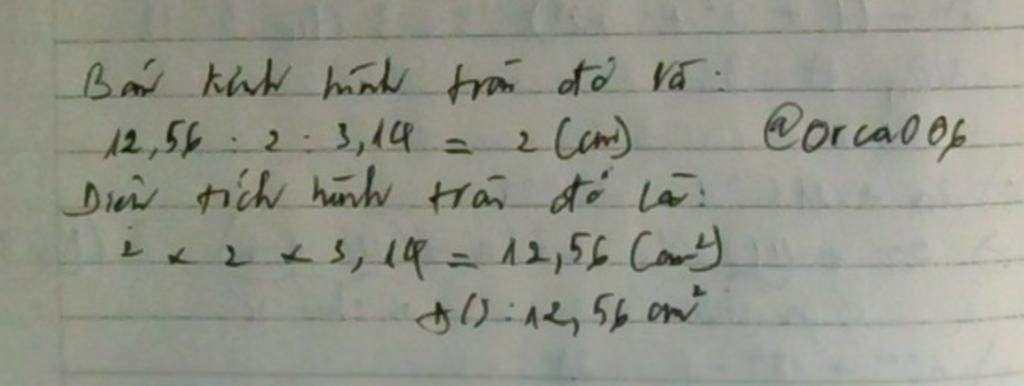 Bán kính hình tròn đó là:
12,56 : 2 : 3,14 = 2 (cm) @orca006
Diện tích hình tròn đó là:
2 x 2 x 3,14 = 12,56 (cm²)
Đ/S: 12,56 cm²